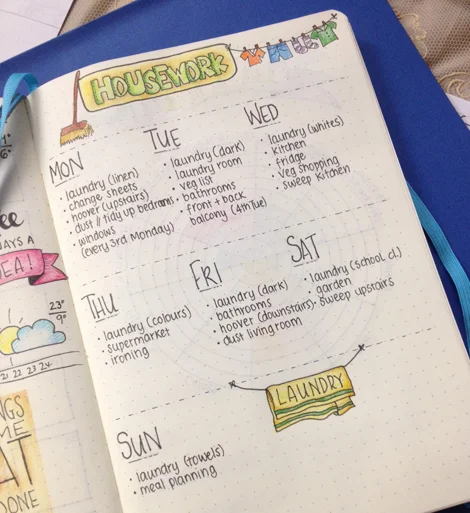 HOUSEWORK
MON
• laundry (linen)
• change sheets
• hoover (upstairs)
• dust & tidy up bedrooms
• windows
(every 3rd Monday)
TUE
• laundry (dark)
• laundry room
• veg list
• bathrooms
• front + back
balcony (4th Tue)
WED
• laundry (whites)
• kitchen
• fridge
• veg shopping
• sweep kitchen
THU
• laundry (colours)
• supermarket
• ironing
FRI
• laundry (dark)
• bathrooms
• hoover (downstairs)
• dust living room
SAT
• laundry (school cl.)
• garden
• sweep upstairs
LAUNDRY
SUN
• laundry (towels)
• meal planning
1°
6°
AYS A
EA!
23°
9°
21 22 23 24
NGS
ME
AT
DONE